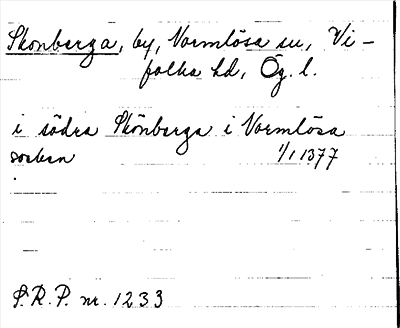 Skönberga, by, Normlösa sn, Vi-
folka hd, Ög. l.
i södra Skönberga i Normlösa
sochn 1/1 1377
S.R.P. nr. 1233